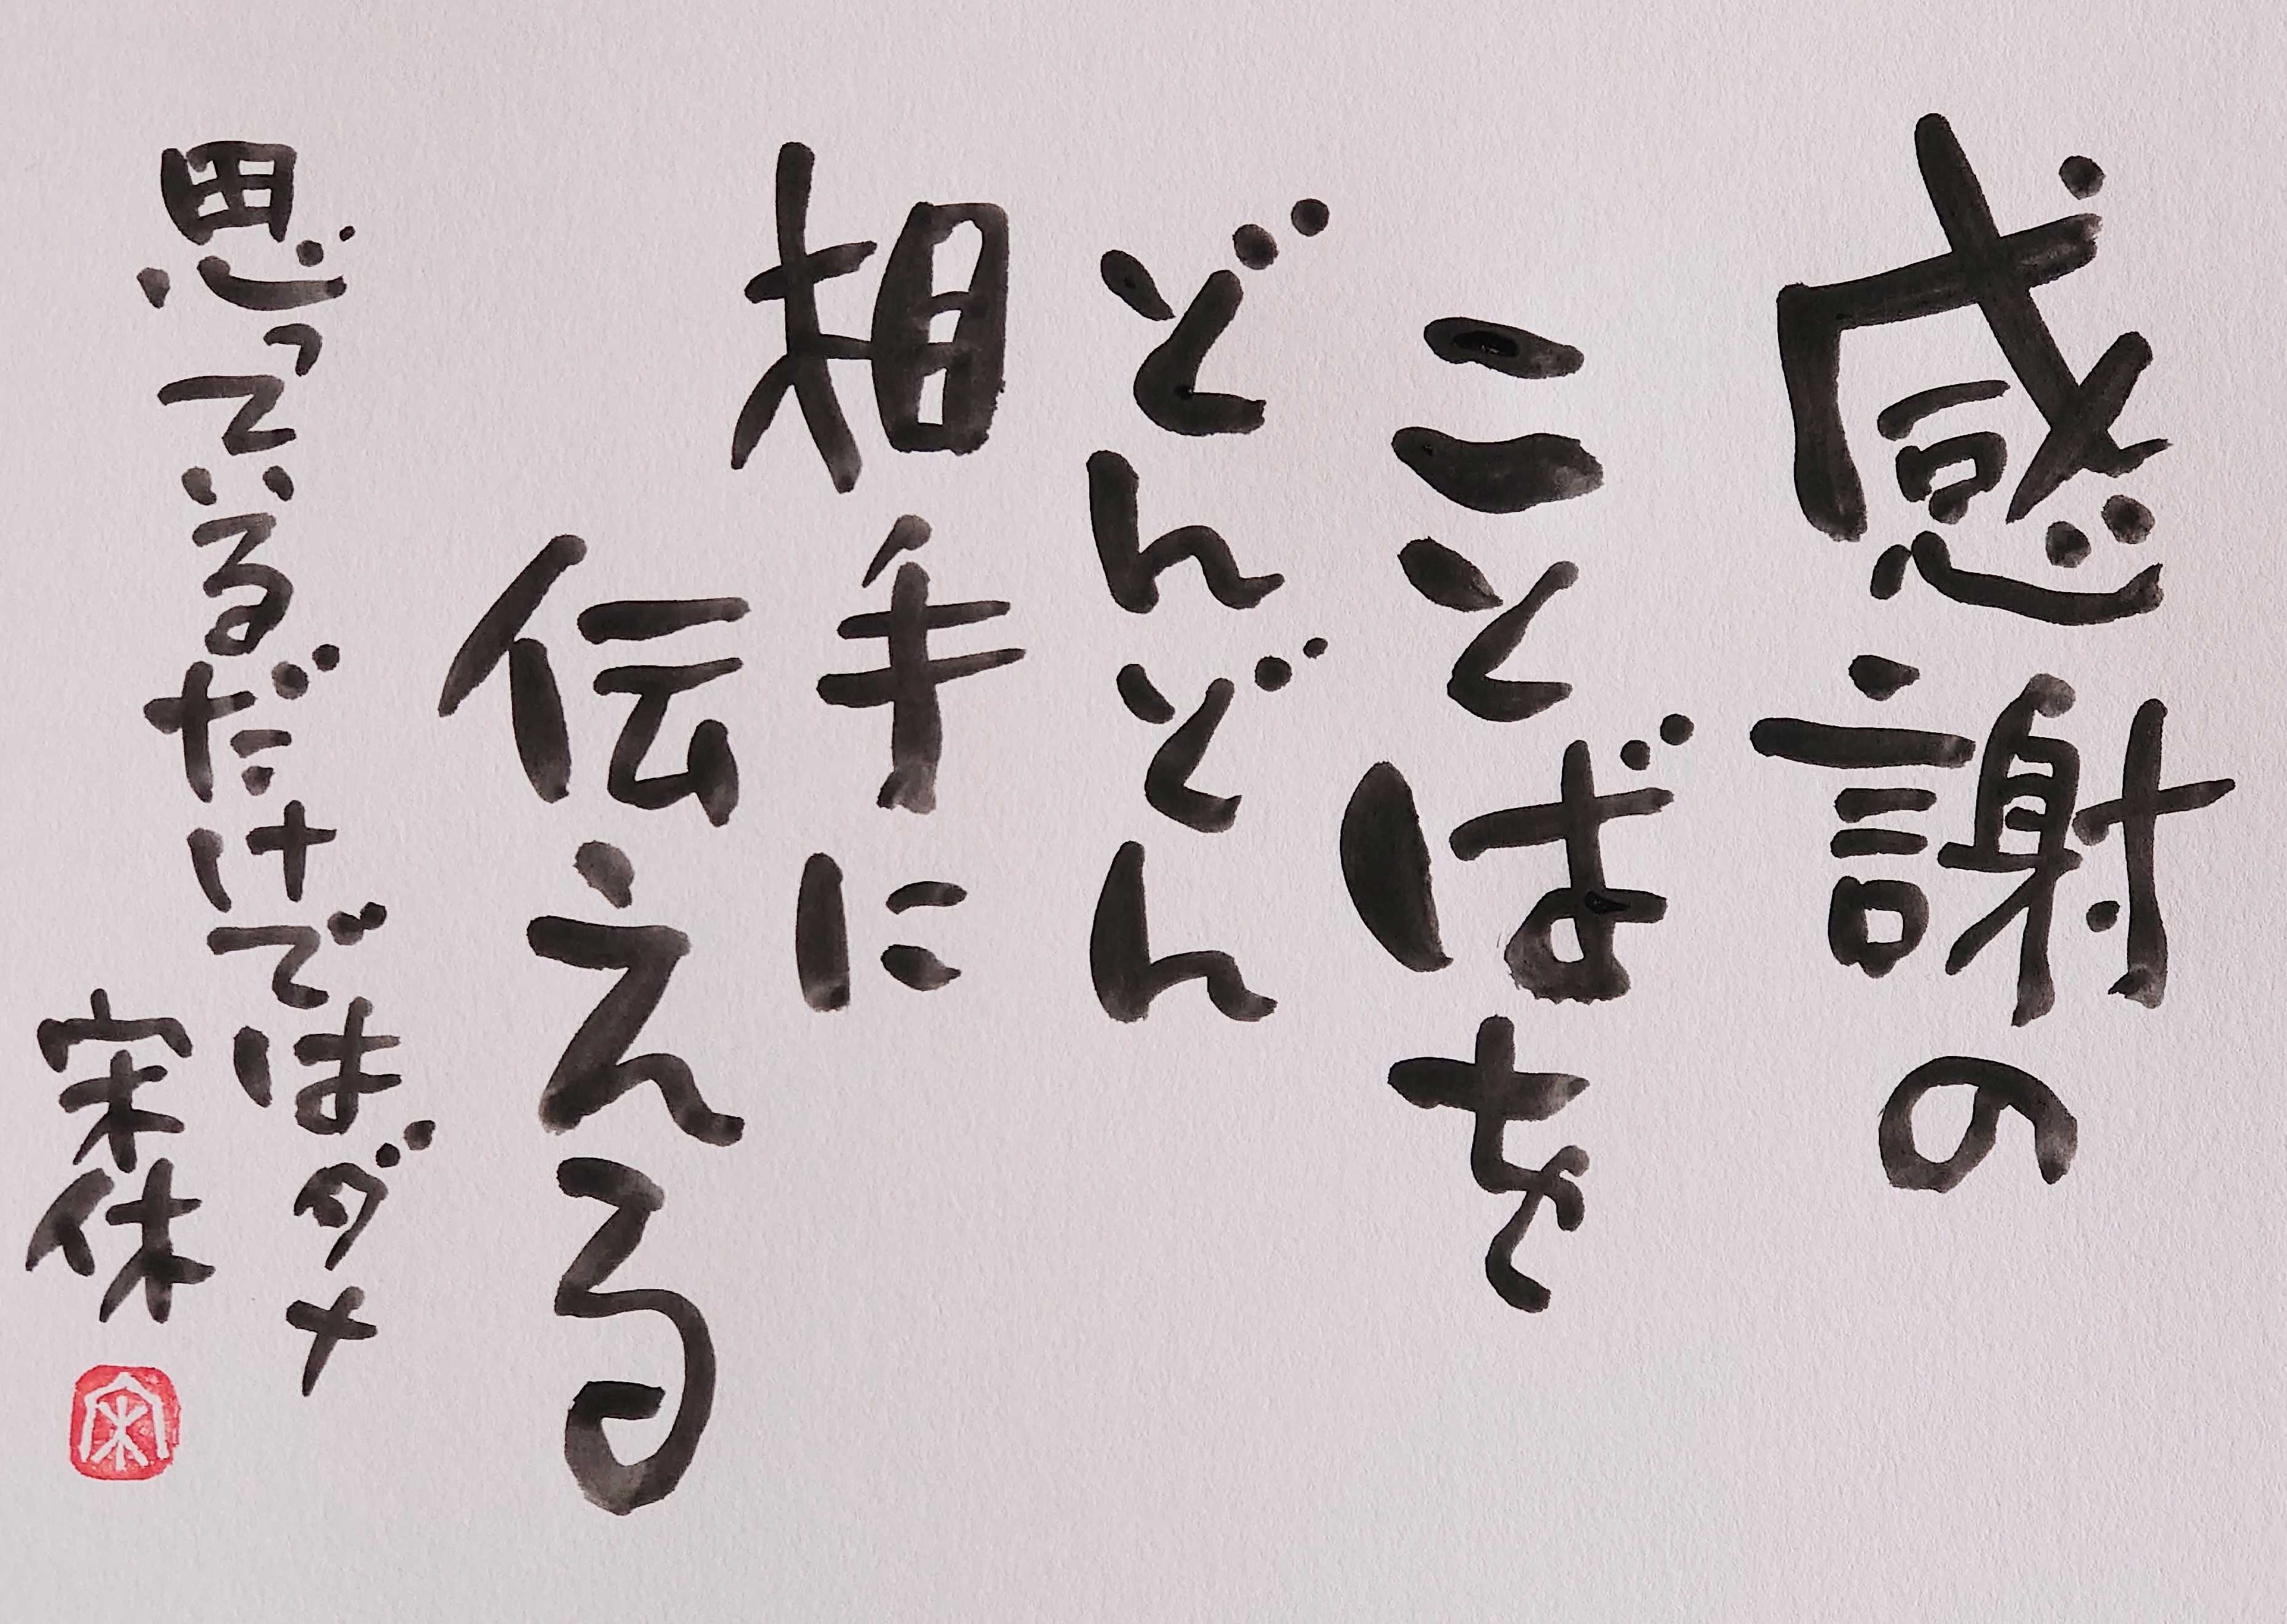 感謝の
ことばを
どんどん
相手に
伝える
思っているだけではダメ
宋休
宋